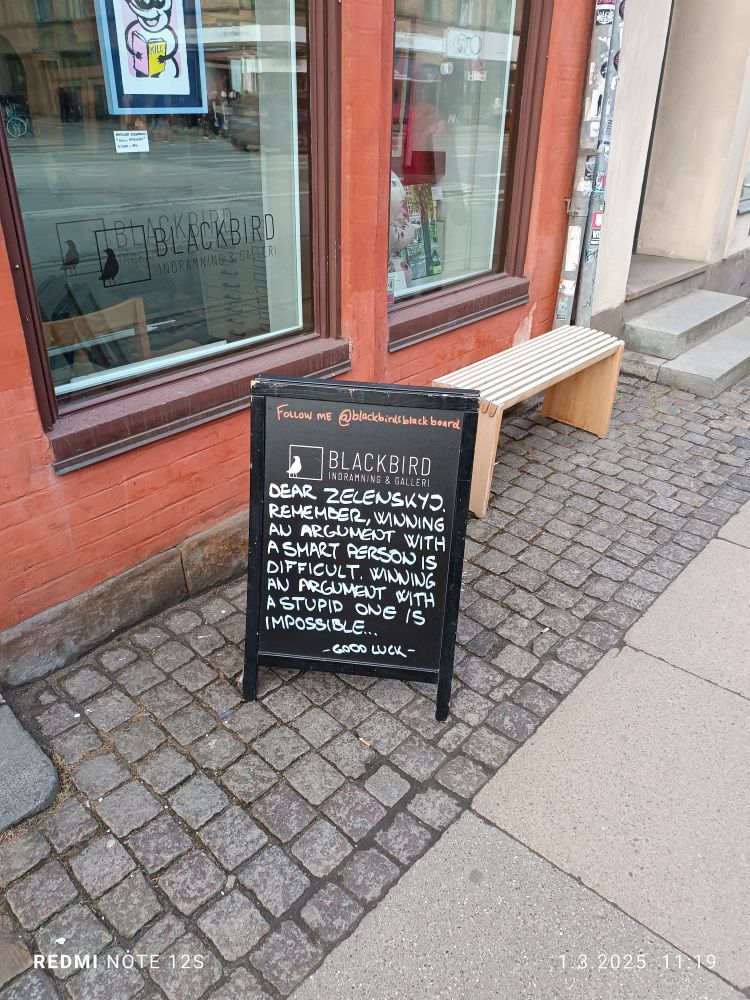 KILL
BLACKBIRD
BLACKBIRD
INDRAMNING & GALLERI
FOLLOW ME @blackbirdsblackboard
BLACKBIRD
INDRAMNING & GALLERI
DEAR ZELENSKYJ.
REMEMBER, WINNING
AN ARGUMENT WITH
A SMART PERSON IS
DIFFICULT. WINNING
AN ARGUMENT WITH
A STUPID ONE IS
IMPOSSIBLE...
-GOOD LUCK-
REDMI NOTE 12S
1.3.2025 11:19